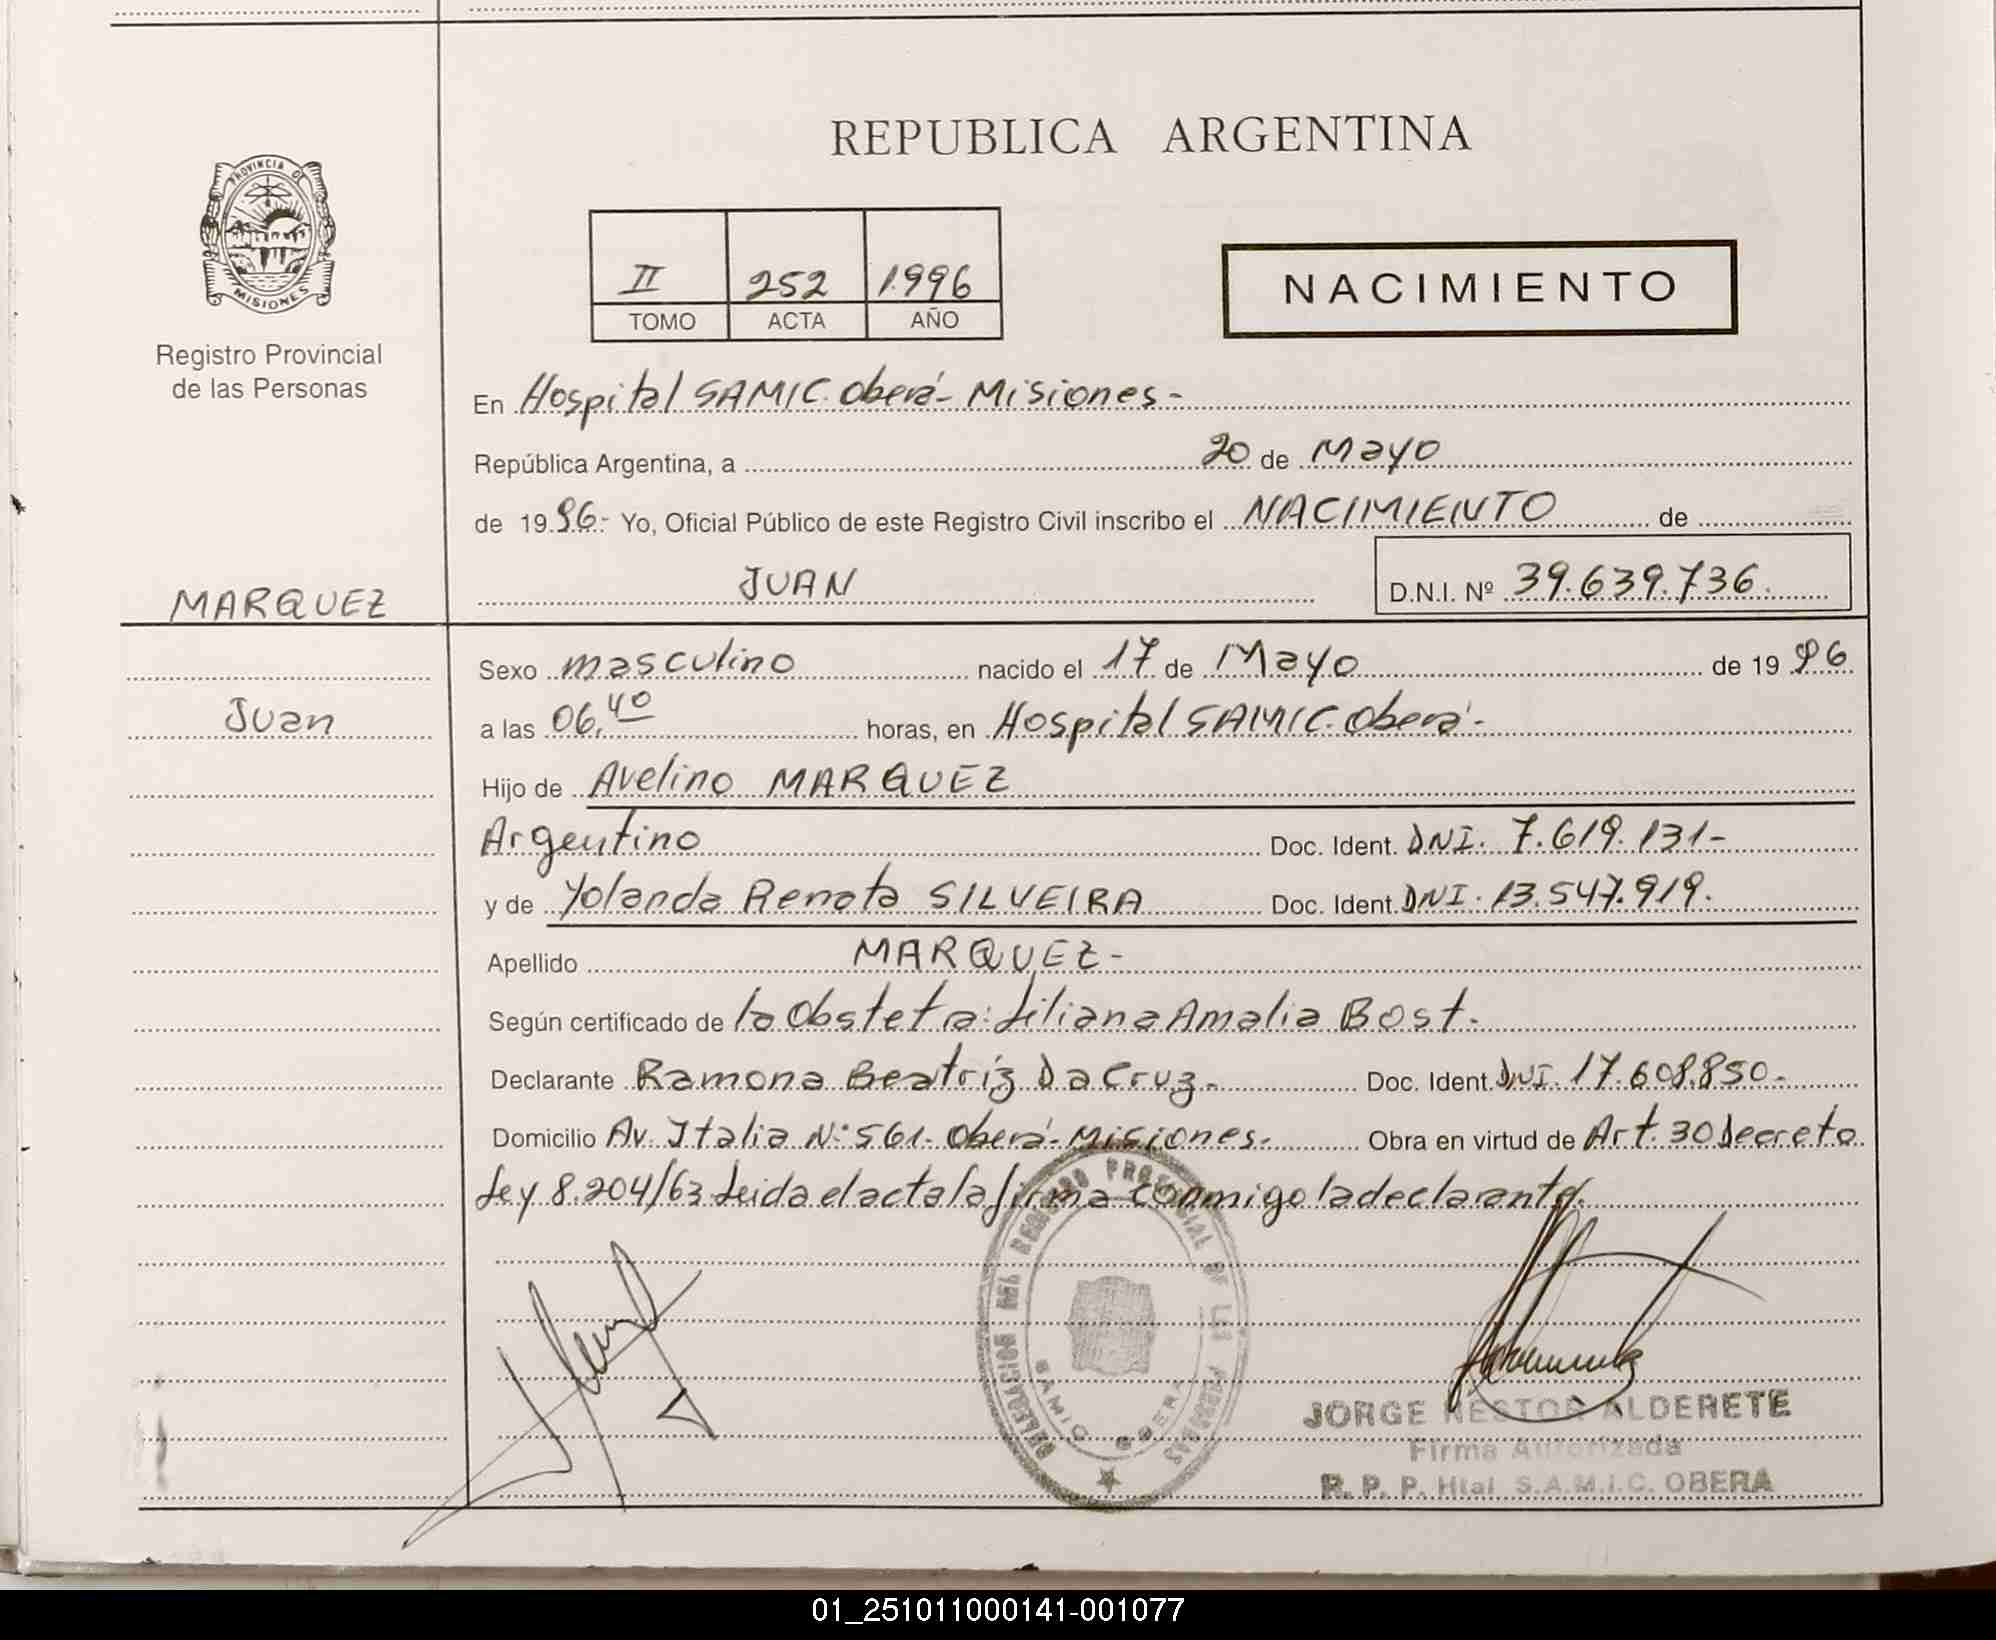 REPUBLICA ARGENTINA
PROVINCIA DE
MISIONES
Registro Provincial
de las Personas
II 252 1996
TOMO ACTA AÑO
NACIMIENTO
En Hospital SAMIC. Oberá- Misiones-
República Argentina, a 20 de Mayo
de 1996.- Yo, Oficial Público de este Registro Civil inscribo el NACIMIENTO de
MARQUEZ
JUAN D.N.I. Nº 39.639.736.
Sexo masculino nacido el 17 de Mayo de 1996
Juan
a las 06,40 horas, en Hospital SAMIC. Oberá-
Hijo de Avelino MARQUEZ
Argentino Doc. Ident. DNI. 7.619.131-
y de Yolanda Renata SILVEIRA Doc. Ident. DNI. 13.547.919.
Apellido MARQUEZ-
Según certificado de la Obstetra: Liliana Amalia Bost.
Declarante Ramona Beatriz Da Cruz- Doc. Ident. DNI. 17.608.850-
Domicilio Av. Italia Nº 561- Oberá- Misiones- Obra en virtud de Art. 30 Decreto
Ley 8.204/63 Leida el acta la firma conmigo la declarante.
DELEGACION DEL REGISTRO PROVINCIAL DE LAS PERSONAS
SAMIC OBERA
JORGE NESTOR ALDERETE
Firma Autorizada
R. P. P. Htal. S.A.M.I.C. OBERA
01_251011000141-001077